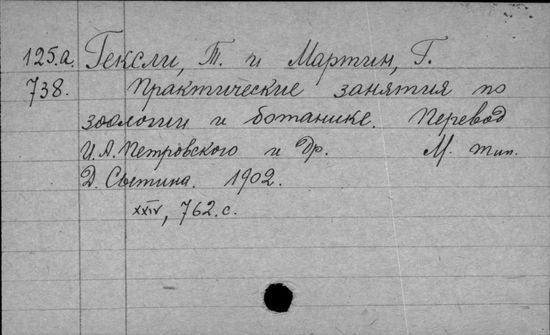 125.а. Гексли, Т. и Мартин, Г.
738. Практические занятия по
зоологии и ботанике. Перевод
И.А. Петровского и др. М. тип.
Д. Сытина. 1902.
xxiv, 762.с.